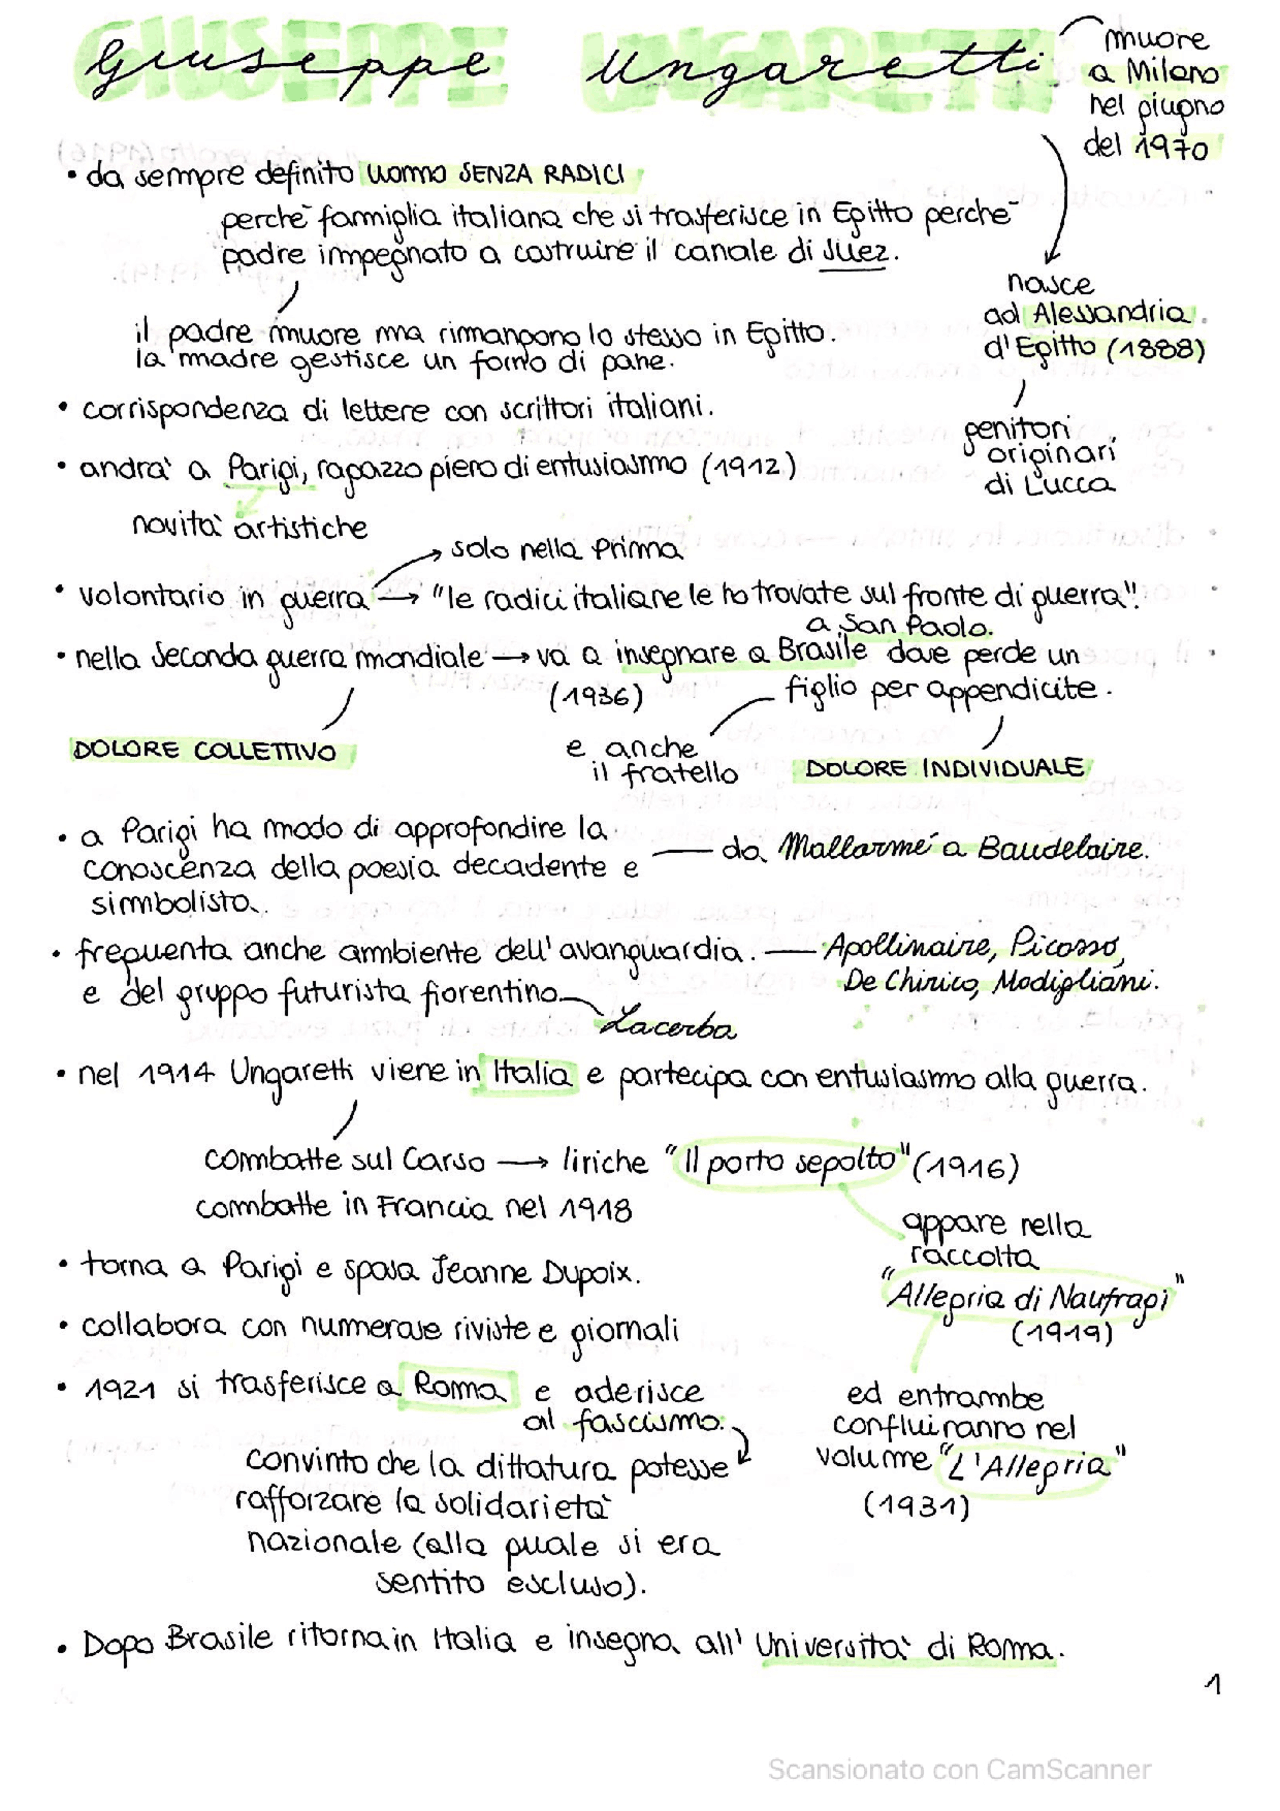 Giuseppe Ungaretti
muore
a Milano
nel giugno
del 1970
• da sempre definito uomo SENZA RADICI
perché famiglia italiana che si trasferisce in Egitto perché
padre impegnato a costruire il canale di Suez.
nasce
ad Alessandria
d'Egitto (1888)
il padre muore ma rimangono lo stesso in Egitto.
la madre gestisce un forno di pane.
genitori
originari
di Lucca
• corrispondenza di lettere con scrittori italiani.
• andrà a Parigi, ragazzo pieno di entusiasmo (1912)
novità artistiche
solo nella Prima
• volontario in guerra → "le radici italiane le ho trovate sul fronte di guerra".
a San Paolo.
• nella Seconda guerra mondiale → va a insegnare a Brasile dove perde un
(1936)
figlio per appendicite.
DOLORE COLLETTIVO
e anche
il fratello
DOLORE INDIVIDUALE
• a Parigi ha modo di approfondire la
conoscenza della poesia decadente e
simbolista.
— da Mallarmé a Baudelaire.
• frequenta anche ambiente dell'avanguardia. — Apollinaire, Picasso,
De Chirico, Modigliani.
e del gruppo futurista fiorentino
Lacerba
• nel 1914 Ungaretti viene in Italia e partecipa con entusiasmo alla guerra.
combatte sul Carso → liriche "Il porto sepolto" (1916)
combatte in Francia nel 1918
appare nella
raccolta
"Allegria di Naufragi"
(1919)
• torna a Parigi e sposa Jeanne Dupoix.
• collabora con numerose riviste e giornali
• 1921 si trasferisce a Roma e aderisce
al fascismo.
convinto che la dittatura potesse
rafforzare la solidarietà
nazionale (alla quale si era
sentito escluso).
ed entrambe
confluiranno nel
volume "L'Allegria"
(1931)
• Dopo Brasile ritorna in Italia e insegna all'Università di Roma.
1
Scansionato con CamScanner